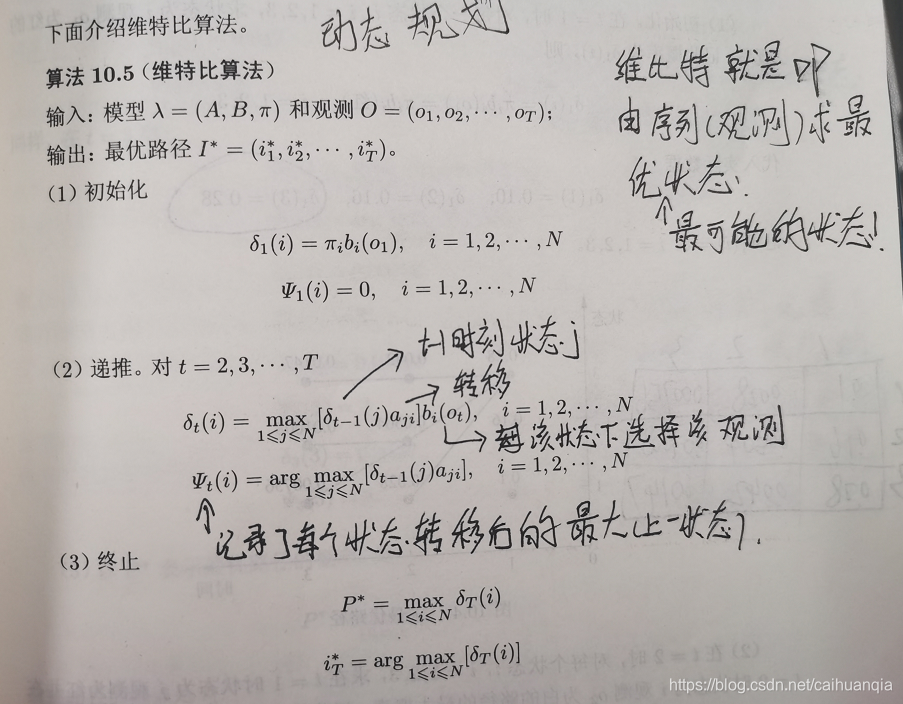 下面介绍维特比算法。
动态规划
算法 10.5 (维特比算法)
输入: 模型 λ = (A, B, π) 和观测 O = (o₁, o₂, ⋯, o_T);
输出: 最优路径 I* = (i₁*, i₂*, ⋯, i_T*)。
维比特就是DP
由序列(观测)求最
优状态.
↑最可能的状态!
(1) 初始化
δ₁(i) = π_i b_i(o₁), i = 1, 2, ⋯, N
Ψ₁(i) = 0, i = 1, 2, ⋯, N
t-1时刻状态j
(2) 递推。对 t = 2, 3, ⋯, T
转移
δ_t(i) = max_{1≤j≤N} [δ_{t-1}(j)a_{ji}]b_i(o_t), i = 1, 2, ⋯, N
该状态下选择该观测
Ψ_t(i) = arg max_{1≤j≤N} [δ_{t-1}(j)a_{ji}], i = 1, 2, ⋯, N
记录了每个状态转移后的最大上一状态j.
(3) 终止
P* = max_{1≤i≤N} δ_T(i)
i_T* = arg max_{1≤i≤N} [δ_T(i)]
https://blog.csdn.net/caihuanqia